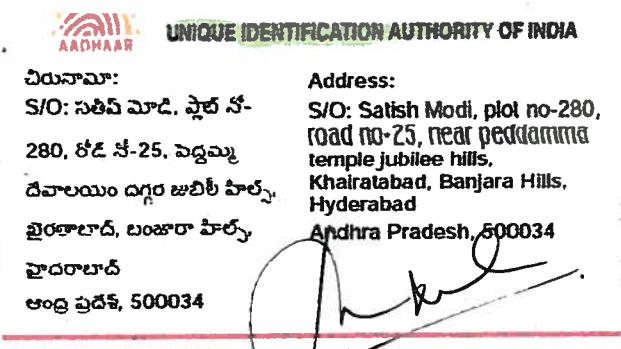 AADHAAR
UNIQUE IDENTIFICATION AUTHORITY OF INDIA
చిరునామా:
S/O: సతీష్ మోడి, ప్లాట్ నో-
280, రోడ్ నో-25, పెద్దమ్మ
దేవాలయం దగ్గర జుబిలీ హిల్స్,
ఖైరతాబాద్, బంజారా హిల్స్,
హైదరాబాద్
ఆంధ్ర ప్రదేశ్, 500034
Address:
S/O: Satish Modi, plot no-280,
road no-25, near peddamma
temple jubilee hills,
Khairatabad, Banjara Hills,
Hyderabad
Andhra Pradesh, 500034